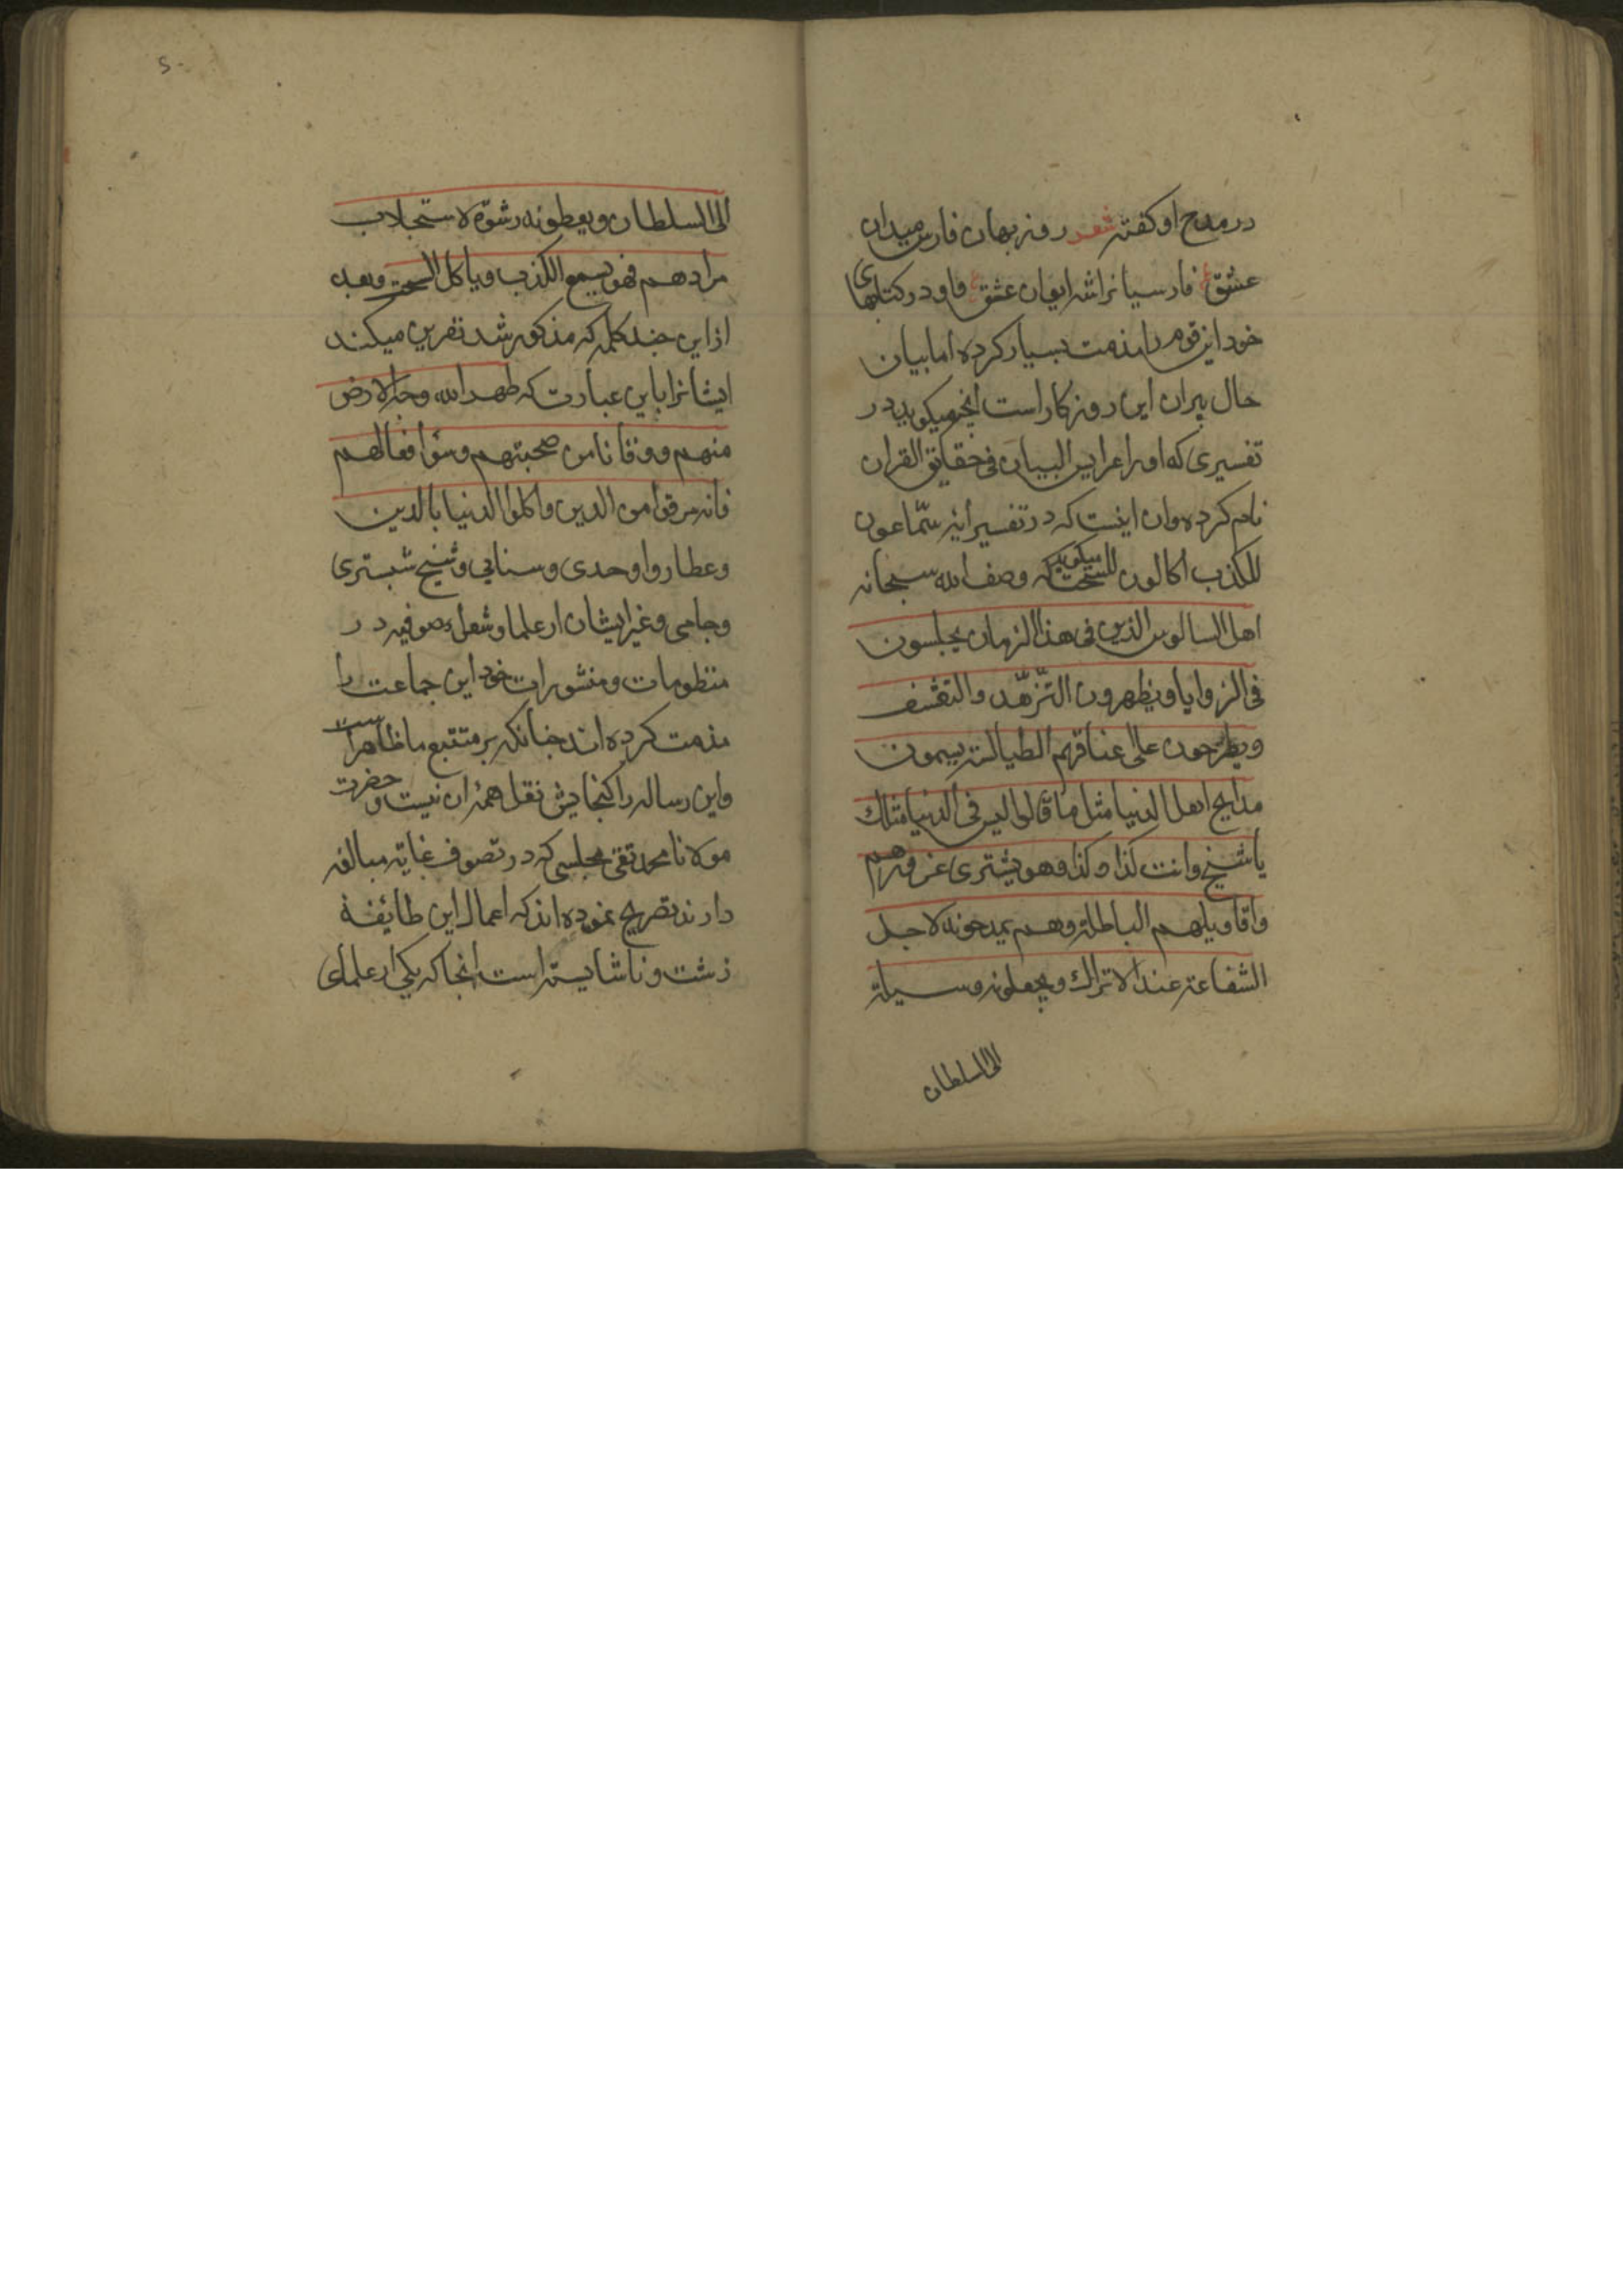 در مدح او کفته شعر روزبهان فارس میدان
عشق ع فارسیانرا شه ایوان عشق ع و او در کتابهای
خود این قوم را مذمت بسیار کرده اما بیان
حال پیران این روزکار است انچه میکوید در
تفسیری که اورا عرایس البیان فی حقایق القران
نام کرده وان اینست که در تفسیر ایه سمّاعون
للکذب اکالون للسحت میکوید که وصف الله سبحانه
اهل السالوس الذین فی هذا الزمان یجلسون
فی الزوایا و یظهرون التّزهّد والتقشف
ویطرحون علی اعناقهم الطیالسة یسمون
مدایح اهل الدنیا مثل ما قالوا لیس فی الدنیا مثلك
یا شیخ وانت کذا و کذا وهو یشتری غرورهم
واقاویلهم الباطلة وهم یمدحونه لاجل
الشفاعة عند الاتراك ویجعلونه وسیلة
الی السلطان
۲۰
الی السلطان ویعطونه رشوة لاستجلاب
مرادهم فهو یسمع الکذب ویاکل السحت وبعد
از این چند کلمه که مذکور شد نفرین میکند
ایشانرا باین عبارت که طهر الله وجه الارض
منهم ووقانا من صحبتهم وسوٴ افعالهم
فانه مرقوا من الدین واکلوا الدنیا بالدین
وعطار واوحدی وسنایی وشیخ شبستری
وجامی وغیر ایشان از علما وشعراء صوفیه در
منظومات ومنثورات خود این جماعت را
مذمت کرده اند چنانکه بر متتبع ما ظاهر است
واین رساله را کنجایش نقل همه ان نیست و حضرت
مولانا محمد تقی مجلسی که در تصوف غایة مبالغه
دارند تصریح نموده اند که اعمال این طائفة
زشت و ناشایسته است انجا که یکی از علمای